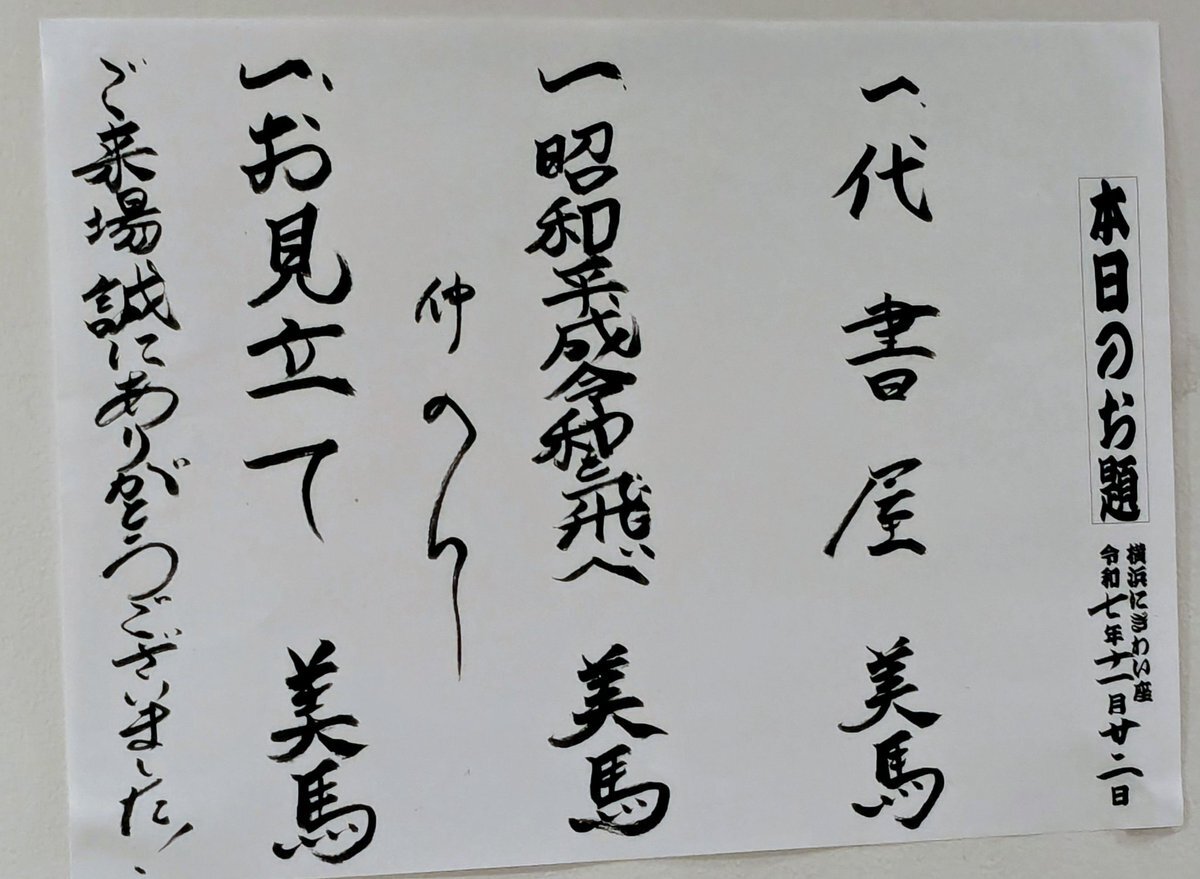 本日のお題
横浜にぎわい座
令和七年十一月廿二日
一、代書屋 美馬
一、昭和平成令和と飛べ 美馬
仲のり
一、お見立て 美馬
ご来場誠にありがとうございました、